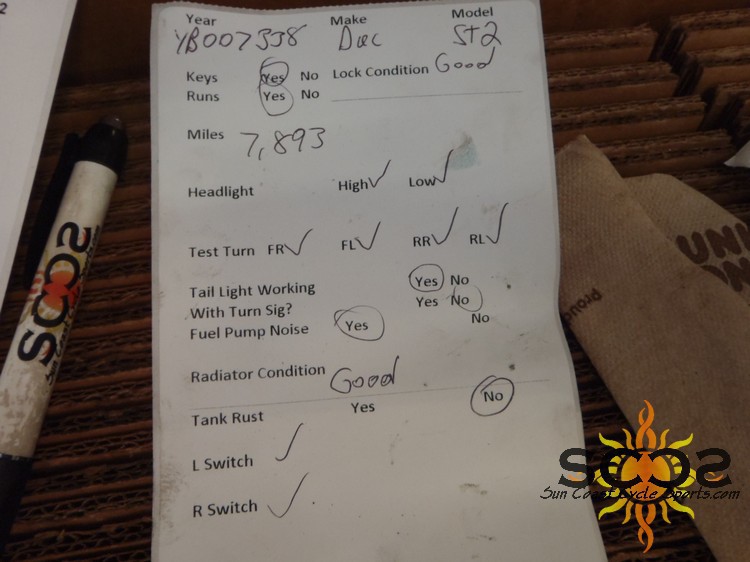 Year Make Model
YB007338 Duc St2
Keys Yes No Lock Condition Good
Runs Yes No
Miles 7,893
Headlight High✓ Low✓
Test Turn FR✓ FL✓ RR✓ RL✓
Tail Light Working Yes No
With Turn Sig? Yes No
Fuel Pump Noise Yes No
Radiator Condition Good
Tank Rust Yes No
L Switch ✓
R Switch ✓
SCCS
Sun Coast Cycle Sports.com
SCCS
2